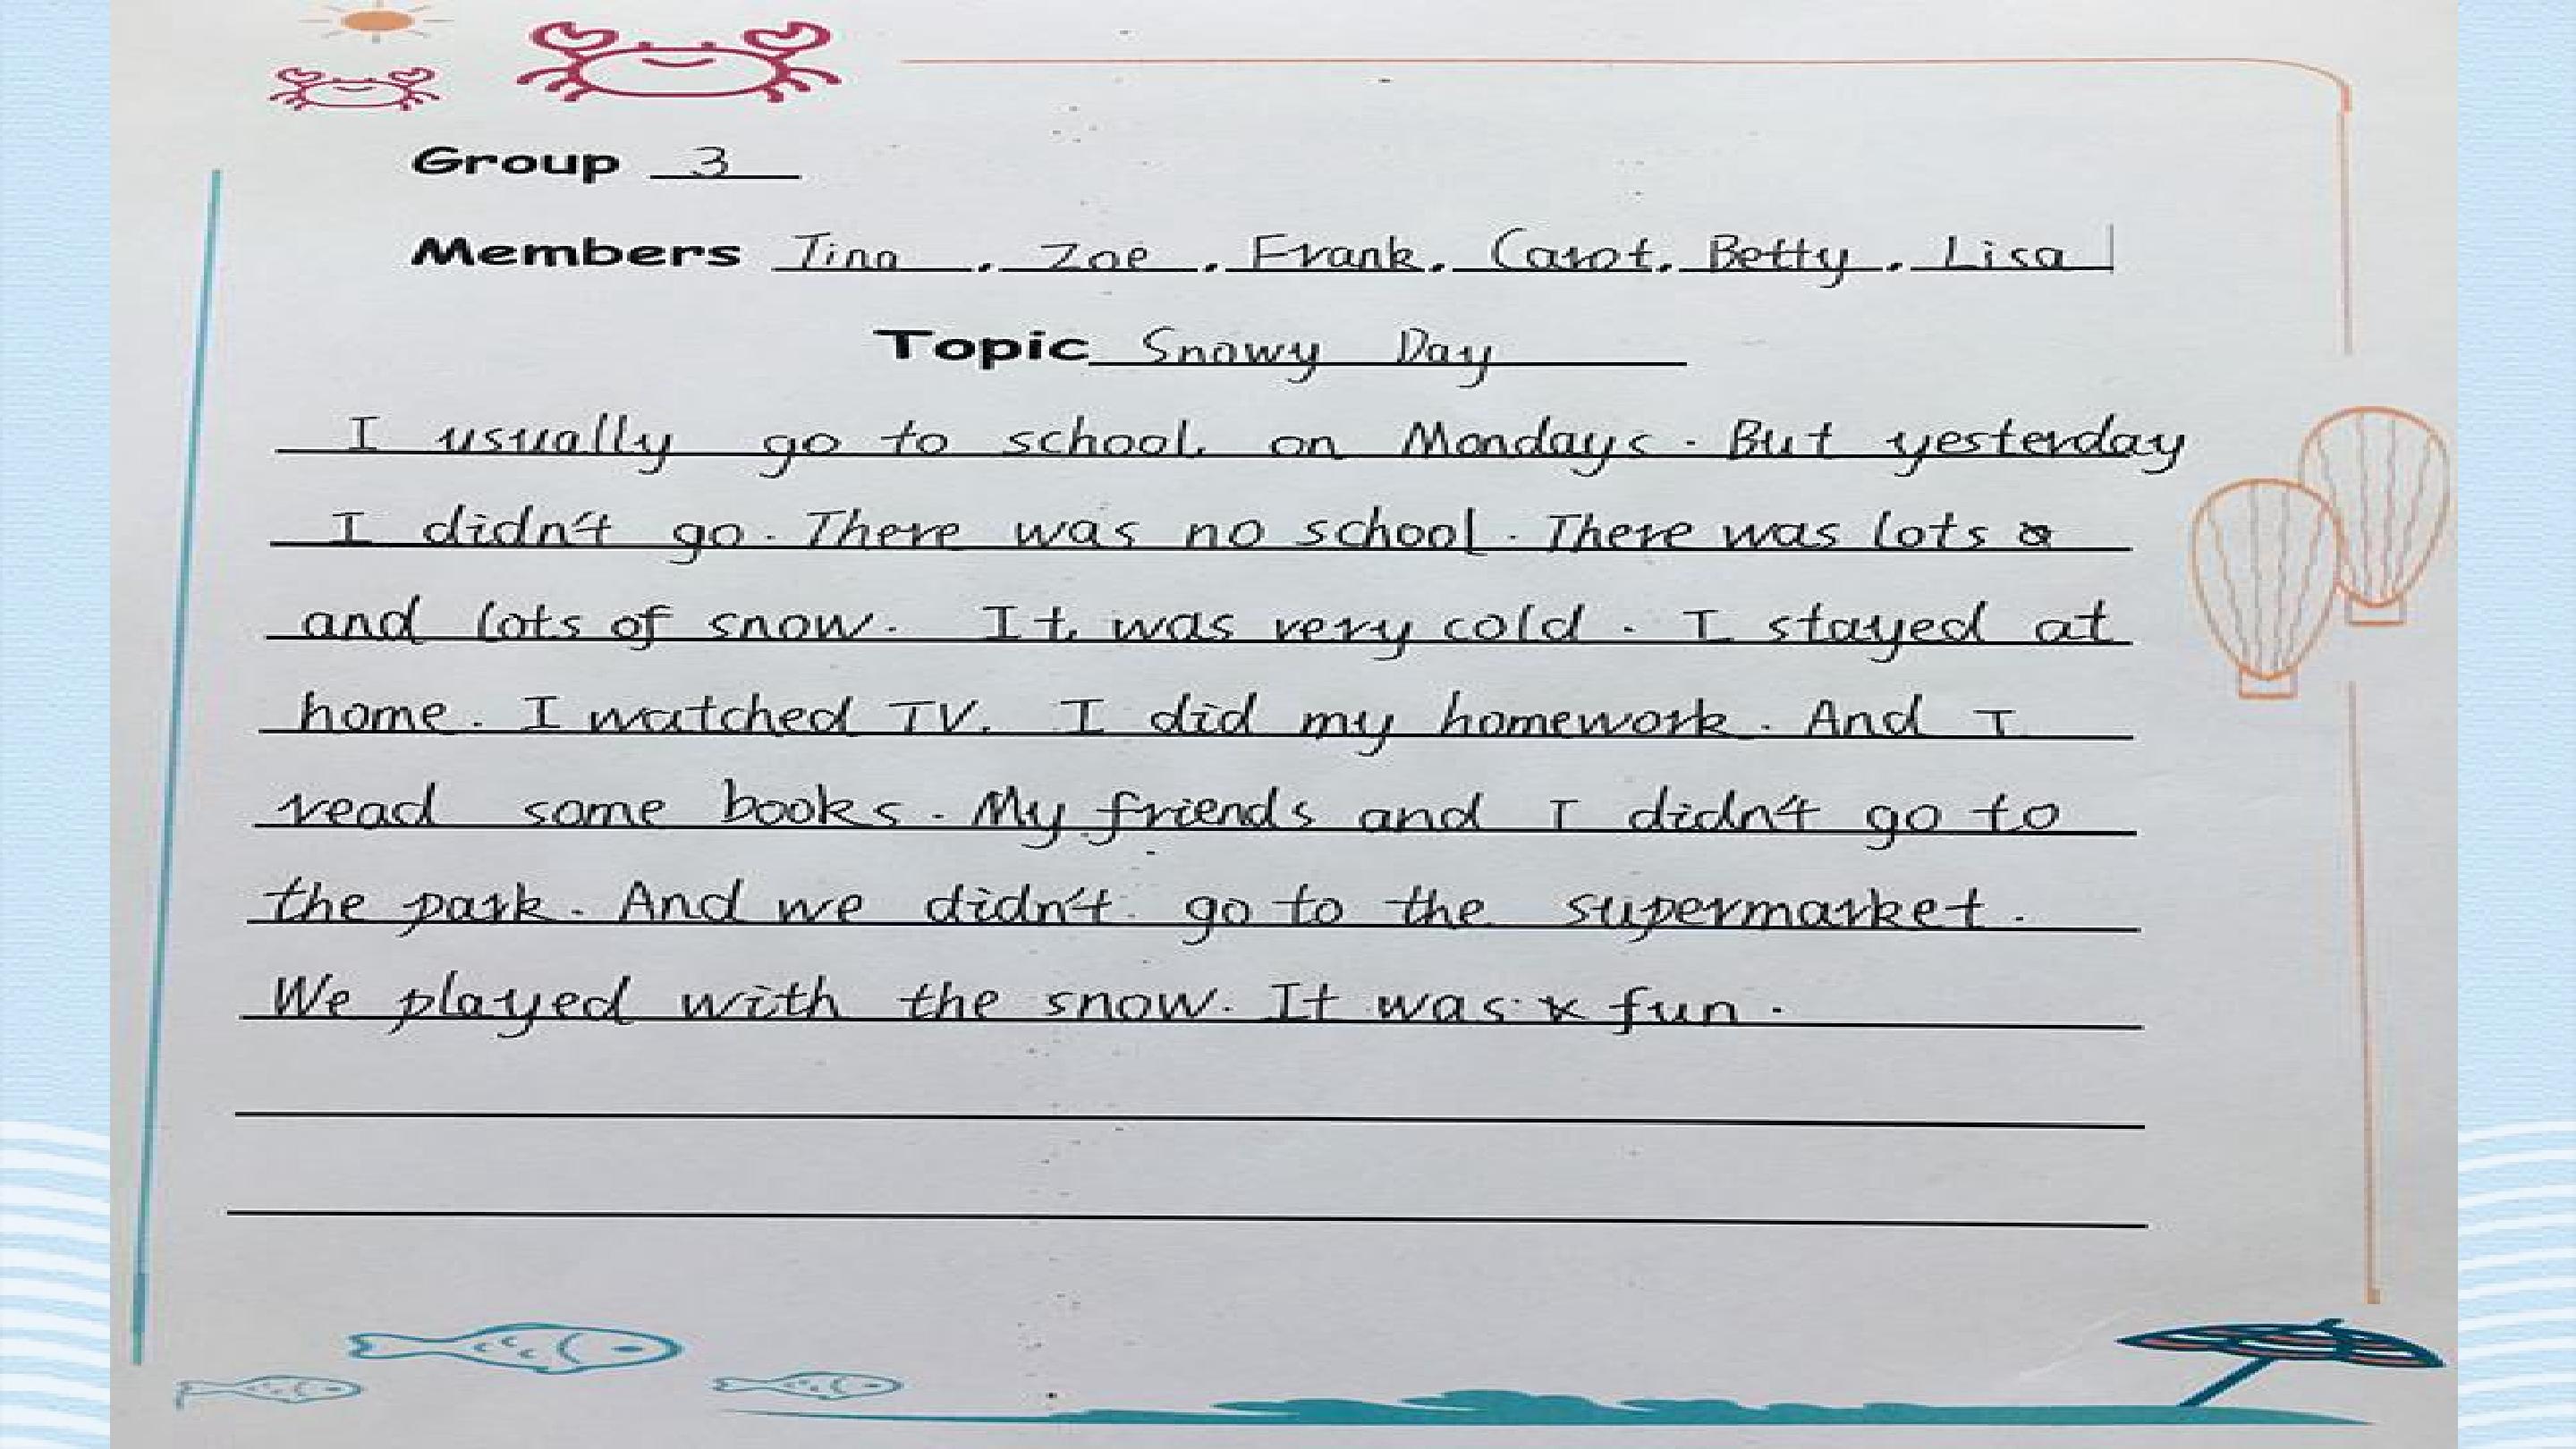 Group 3
Members Tina, Zoe, Frank, Carot, Betty, Lisa
Topic Snowy Day
I usually go to school on Mondays. But yesterday
I didn't go. There was no school. There was lots
and lots of snow. It was very cold. I stayed at
home. I watched TV. I did my homework. And I
read some books. My friends and I didn't go to
the park. And we didn't go to the supermarket.
We played with the snow. It was fun.